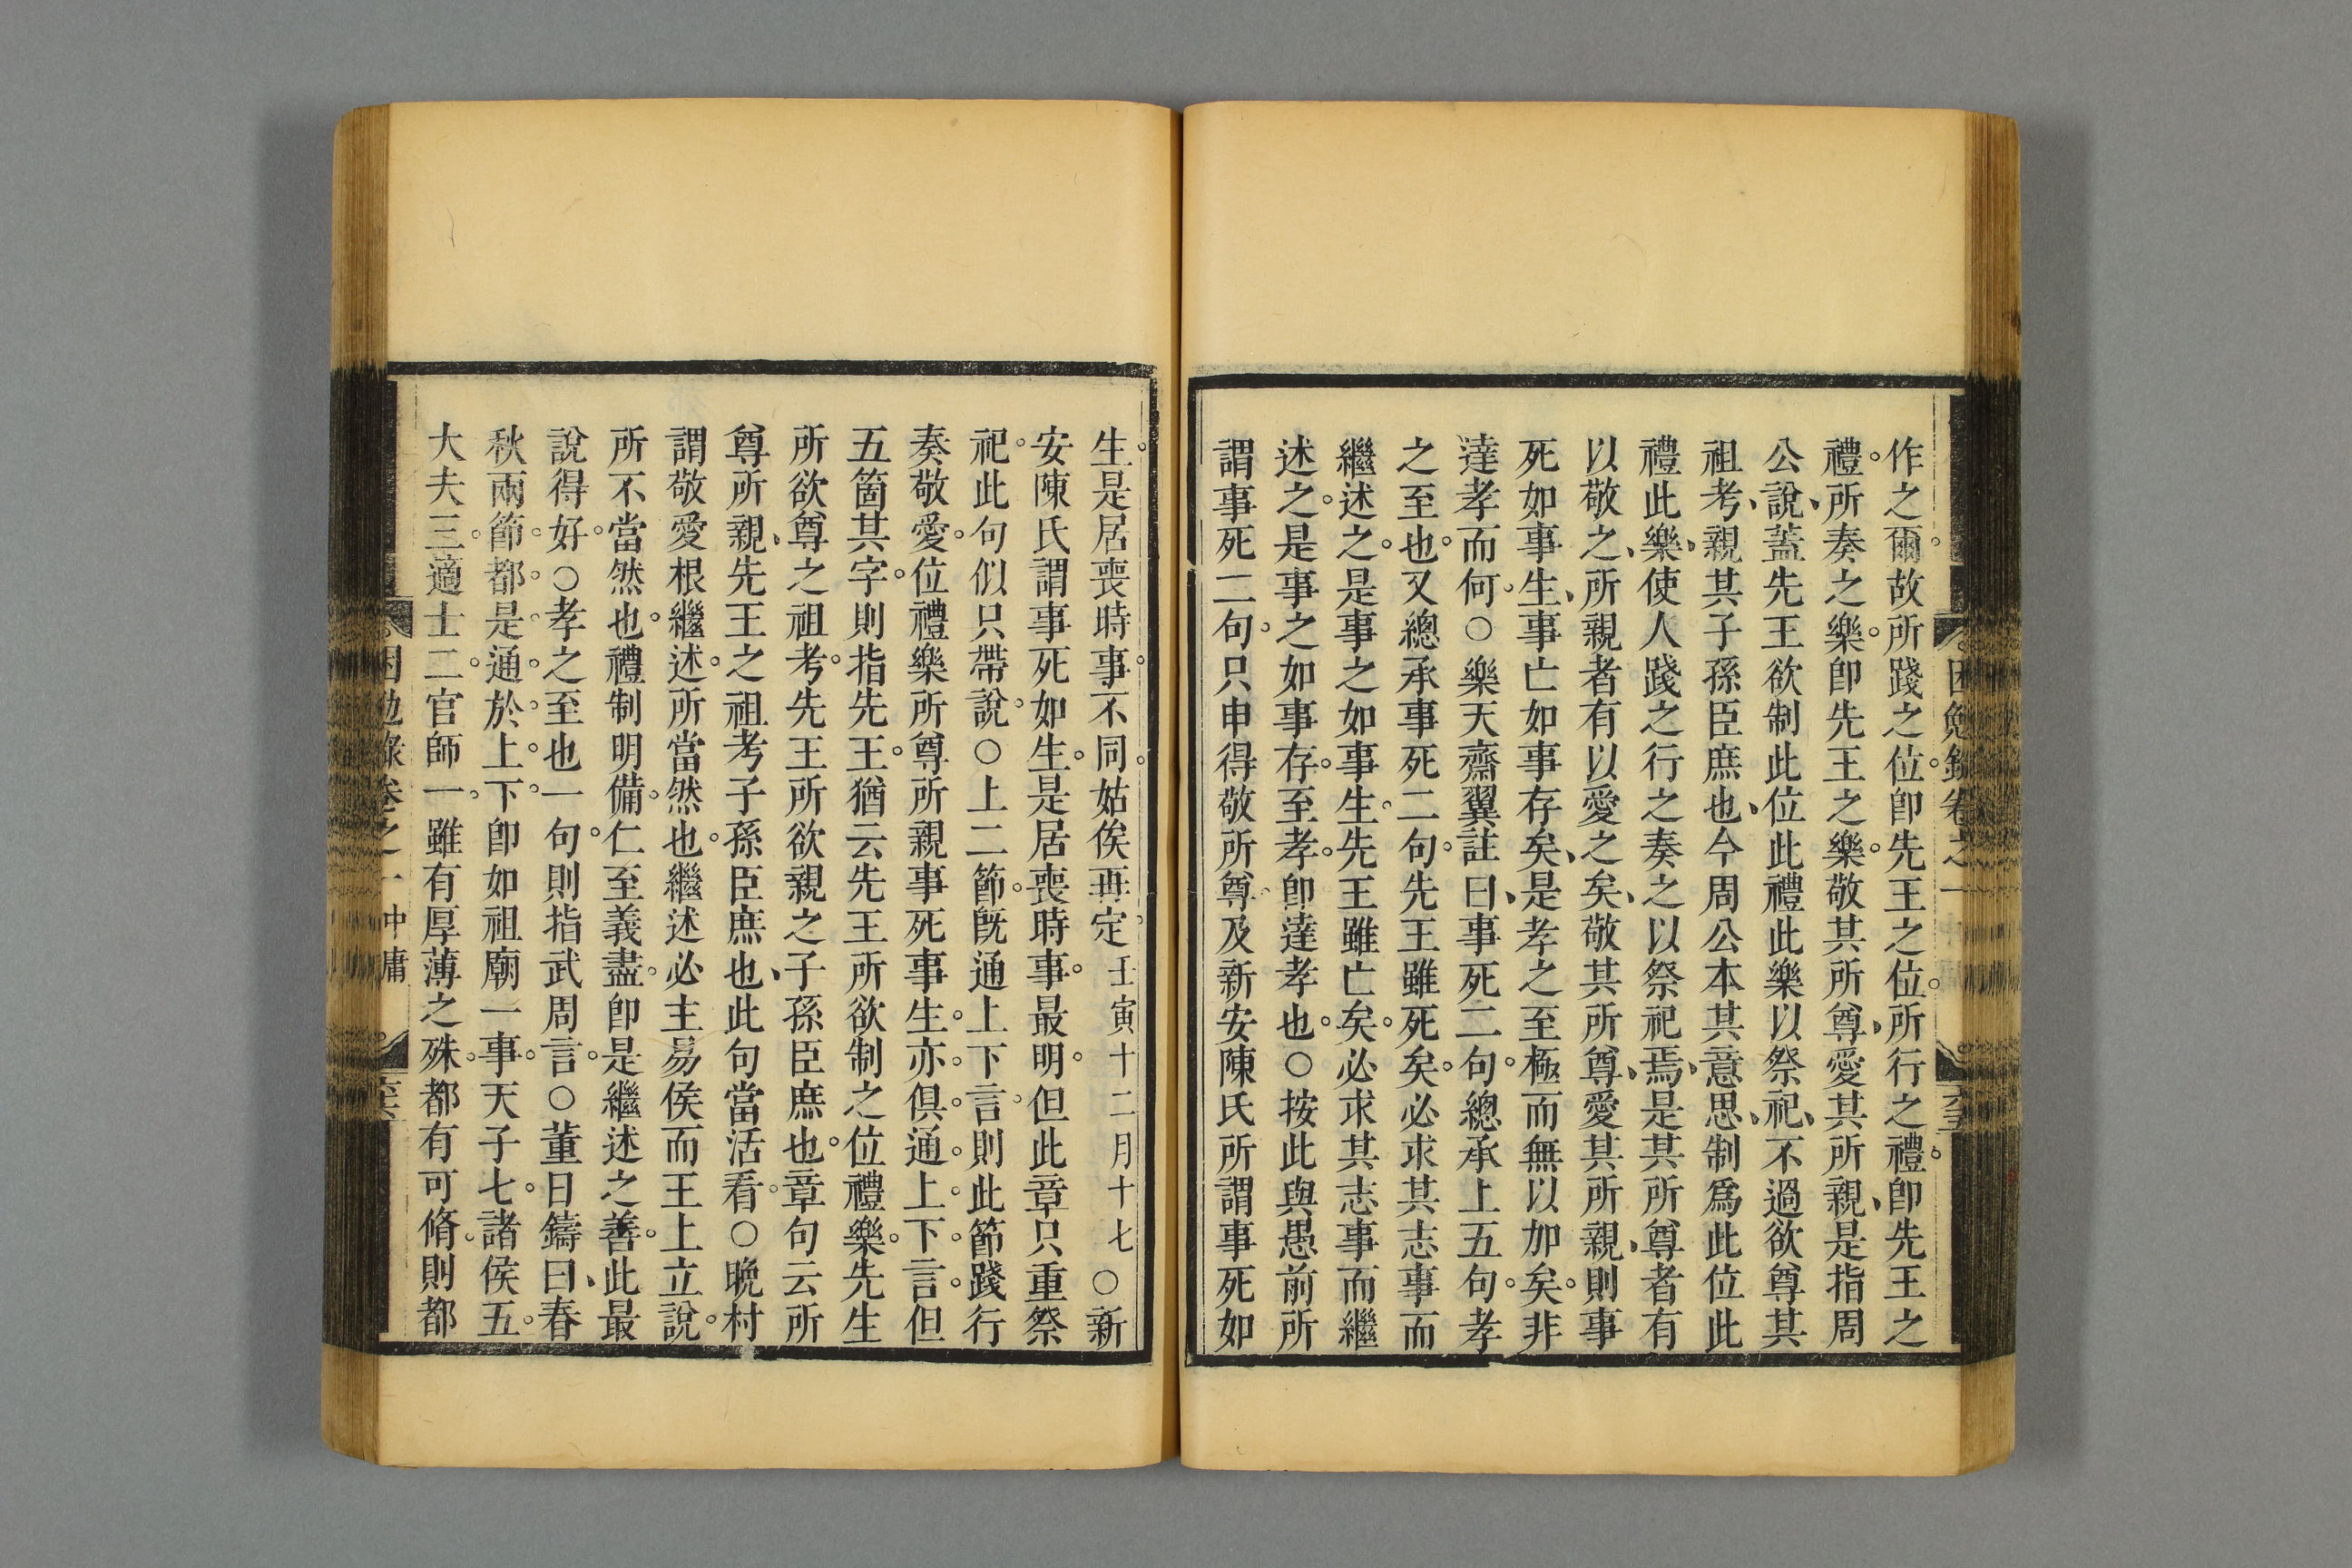 作之爾故所踐之位卽先王之位所行之禮卽先王之
禮所奏之樂卽先王之樂敬其所尊愛其所親是指周
公說蓋先王欲制此位此禮此樂以祭祀不過欲尊其
祖考親其子孫臣庶也今周公本其意思制爲此位此
禮此樂使人踐之行之奏之以祭祀焉是其所尊者有
以敬之所親者有以愛之矣敬其所尊愛其所親則事
死如事生事亡如事存矣是孝之至極而無以加矣非
達孝而何○樂天齋翼註曰事死二句總承上五句孝
之至也又總承事死二句先王雖死矣必求其志事而
繼述之是事之如事生先王雖亡矣必求其志事而繼
述之是事之如事存至孝卽達孝也○按此與愚前所
謂事死二句只申得敬所尊及新安陳氏所謂事死如
困勉錄卷之一
生是居喪時事不同姑俟再定壬寅十二月十七○新
安陳氏謂事死如生是居喪時事最明但此章只重祭
祀此句似只帶說○上二節旣通上下言則此節踐行
奏敬愛位禮樂所尊所親事死事生亦俱通上下言但
五箇其字則指先王猶云先王所欲制之位禮樂先生
所欲尊之祖考先王所欲親之子孫臣庶也章句云所
尊所親先王之祖考子孫臣庶也此句當活看○晚村
謂敬愛根繼述所當然也繼述必主易侯而王上立說
所不當然也禮制明備仁至義盡卽是繼述之善此最
說得好○孝之至也一句則指武周言○董日鑄曰春
秋兩節都是通於上下卽如祖廟一事天子七諸侯五
大夫三適士二官師一雖有厚薄之殊都有可脩則都
困勉錄卷之一 中庸